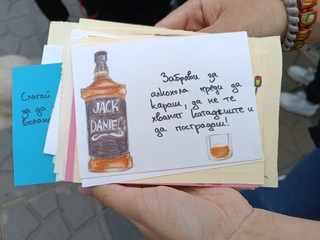 Забрави за
алкохола преди да
караш, да не те
хванат катаджиите и
да пострадаш!
JACK
DANIEL
Слагай
за да